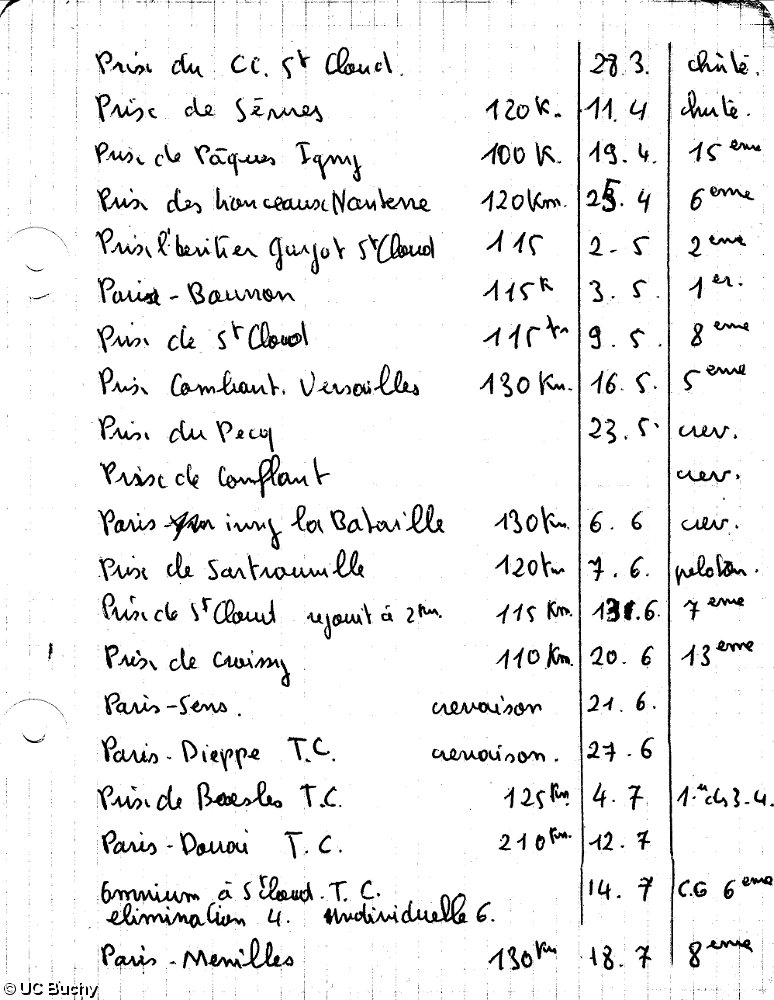 Prix du CC. St Cloud. 28 3. chûté.
Prix de Sèvres 120 K. 11. 4 chuté.
Prix de Pâques Igny 100 K. 19. 4. 15 eme
Prix des Nanterre 120 Km. 25. 4 6 eme
Prix l'heritier Guyot St Cloud 115 2 - 5 2 eme
Paris - Bournon 115 K 3. 5. 1 er.
Prix de St Cloud 115 km 9. 5. 8 eme
Prix Versailles 130 Km. 16. 5. 5 eme
Prix du Pecq 23. 5. crev.
Prix de Conflant crev.
Paris - la Bataille 130 Km. 6. 6 crev.
Prix de Sartrouville 120 km 7. 6. peloton.
Prix de St Cloud rejoint à 2 km. 115 Km. 13.6. 7 eme
Prix de Croissy 110 Km. 20. 6 13 eme
Paris - Sens. crevaison 21. 6.
Paris - Dieppe T.C. crevaison. 27 - 6
Prix de T.C. 125 Km 4. 7 3-4.
Paris - Douai T. C. 210 Km. 12. 7
Omnium à St Cloud. T. C. 14. 7 C.G 6 eme
elimination 4. individuelle 6.
Paris - Menilles 130 Km 18. 7 8 eme
© UC Buchy